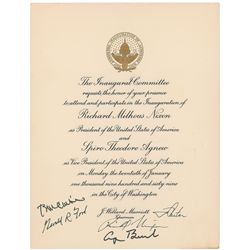 The Inaugural Committee
requests the honor of your presence
to attend and participate in the Inauguration of
Richard Milhous Nixon
as President of the United States of America
and
Spiro Theodore Agnew
as Vice President of the United States of America
on Monday the twentieth of January
one thousand nine hundred and sixty nine
in the City of Washington
J. Willard Marriott
Chairman
Gerald R. Ford
G Bush